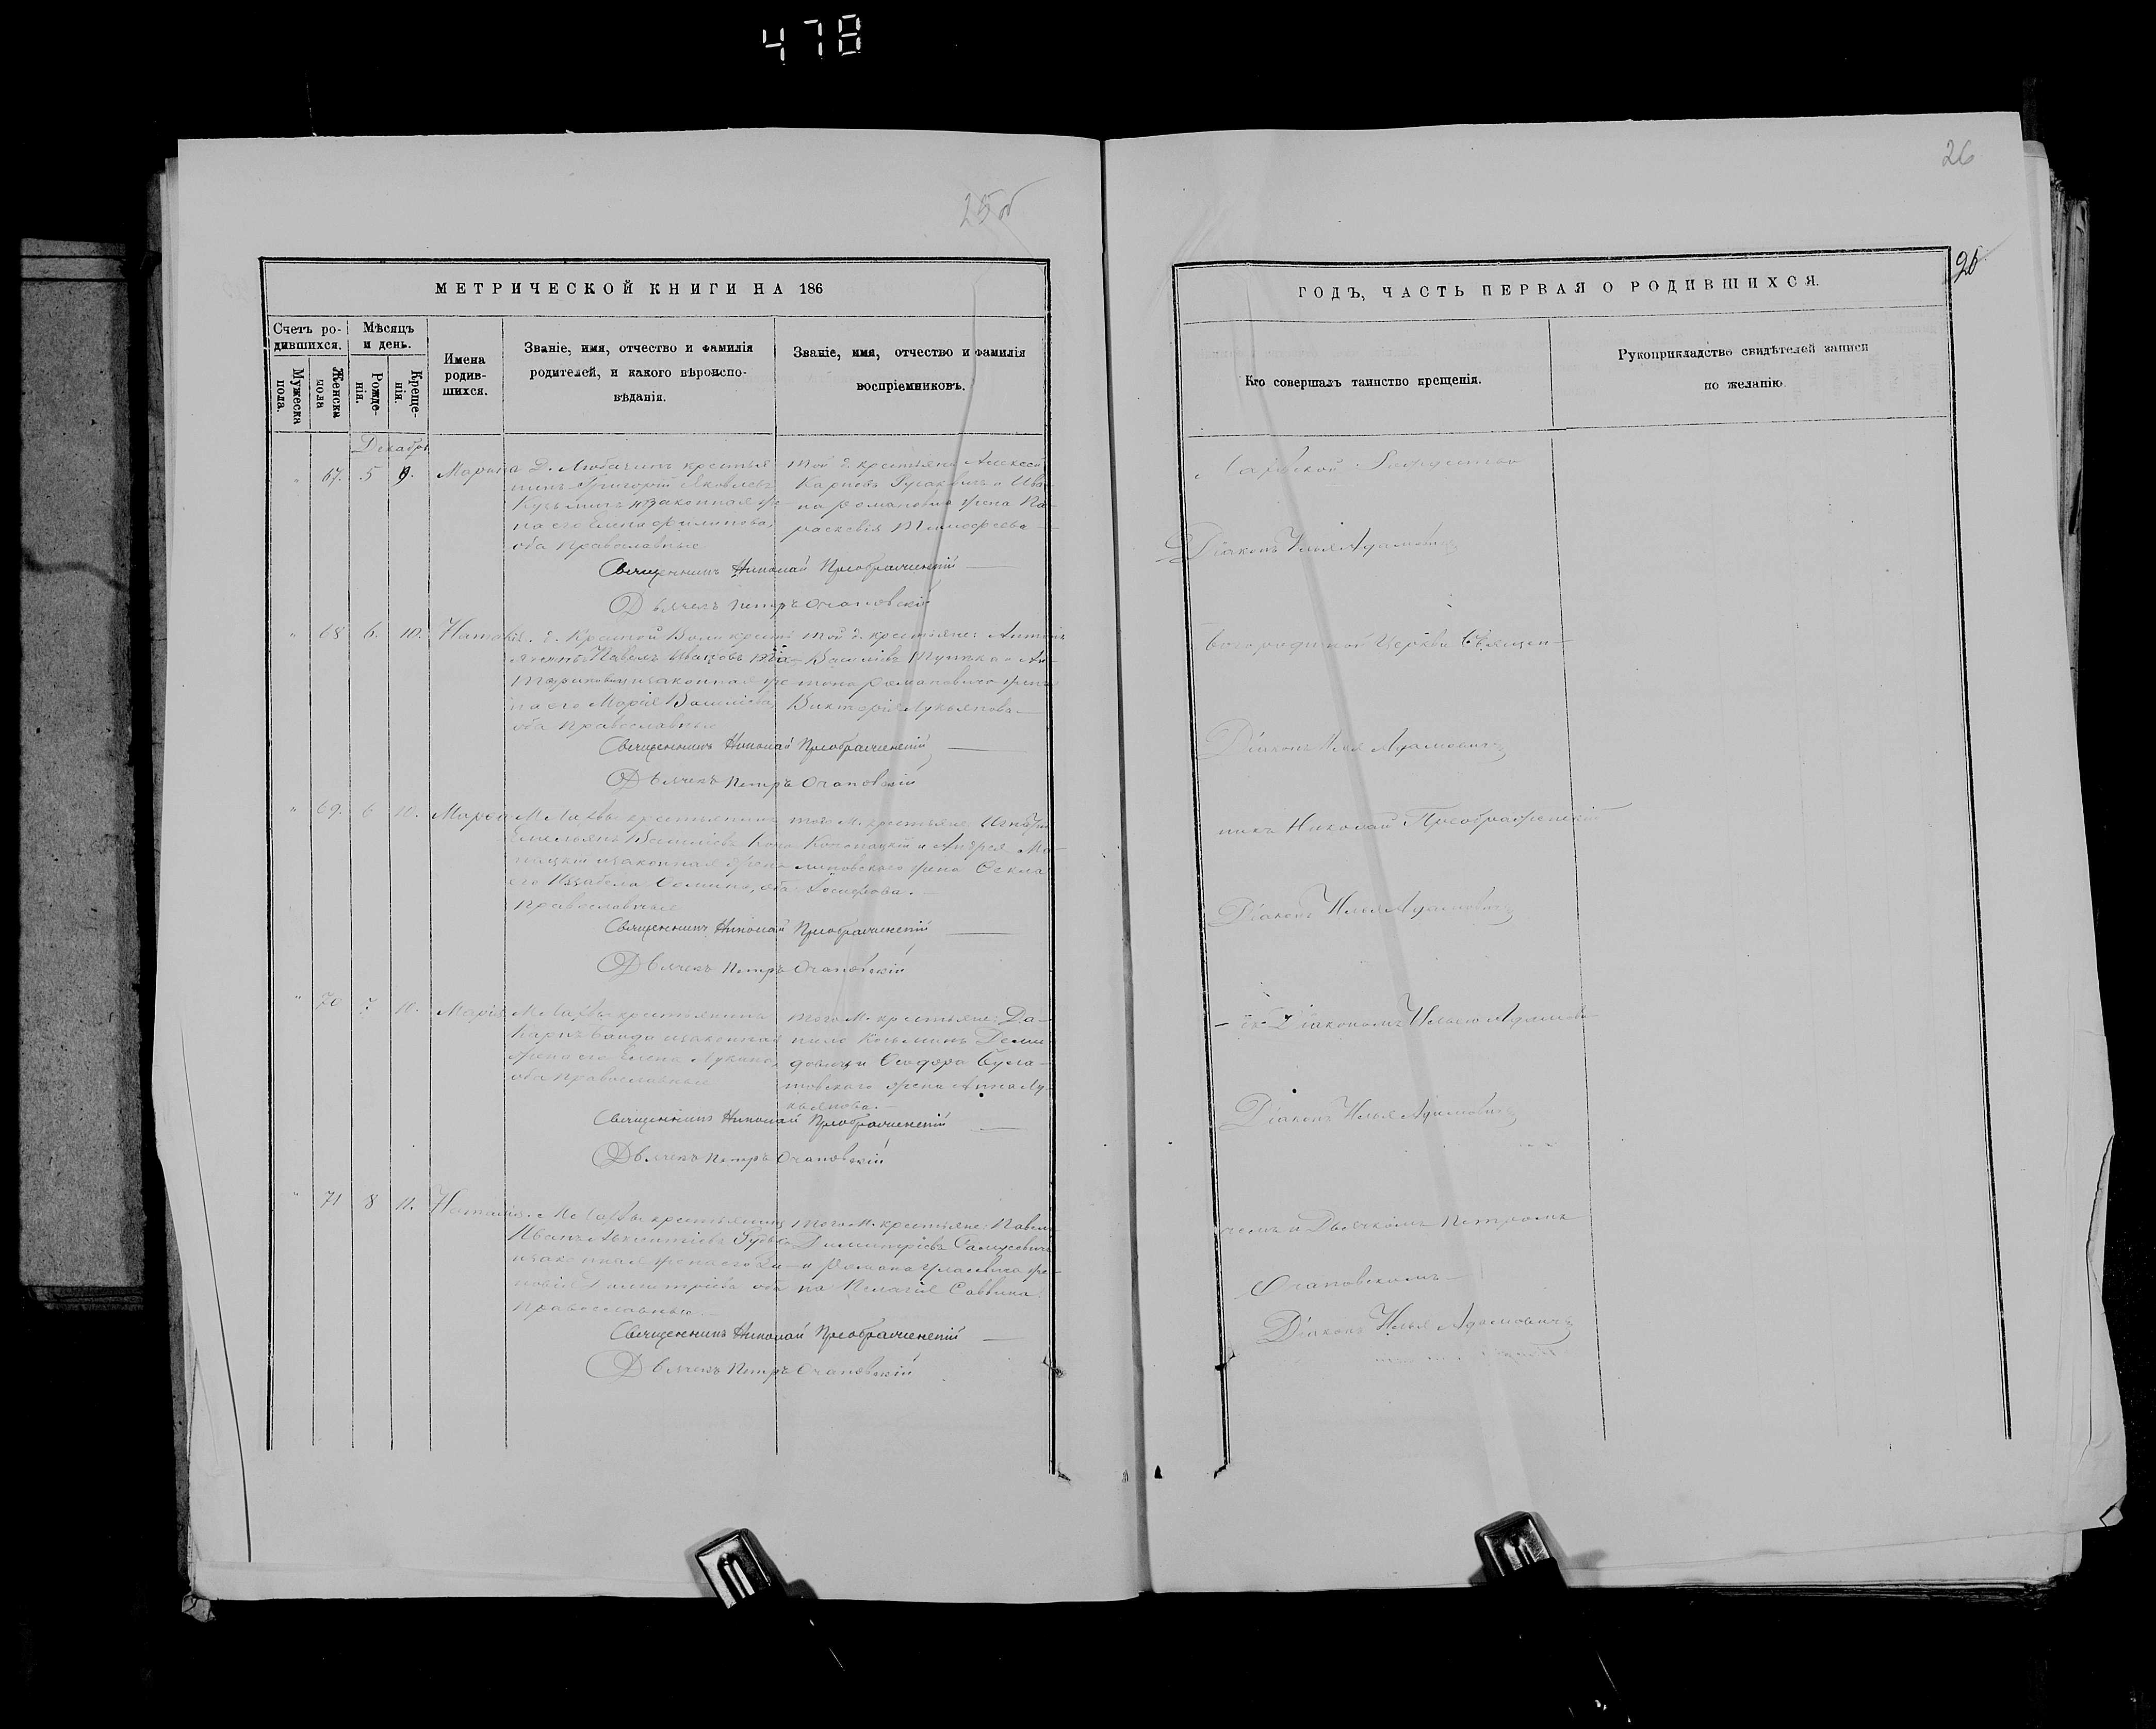 478
25об
26
26
МЕТРИЧЕСКОЙ КНИГИ НА 186
Счетъ ро-
дившихся.
Мужеска
пола.
Женска
пола
Мѣсяцъ
и день.
Рожде-
нія.
Креще-
нія.
Имена
родив-
шихся.
Званіе, имя, отчество и фамилія
родителей, и какого вѣроиспо-
вѣданія.
Званіе, имя, отчество и фамилія
воспріемниковъ.
Декабрь
" 67. 5 9. Марина
Д. Любачинъ крестья-
нинъ Григорій Яковлевъ
Кузьминъ и законная же-
на его Елена Филипова,
оба православные
той д. крестьяне Алексей
Карповъ Гусаковичъ и Ива-
на Романовича жена Па-
раскевія Тимофеева
Священникъ Николай Преображенскій
Дьячекъ Петръ Очаповскій
" 68 6. 10. Наталія.
д. Красной Воли крестья-
нинъ Павелъ Ивановъ
и законная же-
на его Марія Васильева,
оба православные
той д. крестьяне: Антонъ
Василіевъ и Ан-
тона Романовича жена
Викторія Лукьянова
Священникъ Николай Преображенскій
Дьячекъ Петръ Очаповскій
" 69. 6 10. Марѳа
М. Лахвы крестьянинъ
Емельянъ Василіевъ Коно-
пацкій и законная жена
его Иззабела Осипова, оба
православные
того М. крестьяне: Игнатій
Конопацкій и Андрея Ма-
линовского жена Ѳекла
Іосифова.
Священникъ Николай Преображенскій
Дьячекъ Петръ Очаповскій
" 70 7. 10. Марія
М. Лахвы крестьянинъ
Карпъ и законная
жена его Елена Лукина,
оба православные
того М. крестьяне: Да-
нило Козьминъ Деми-
довичъ и Ѳеодора
жена Анна Лу-
кьянова.
Священникъ Николай Преображенскій
Дьячекъ Петръ Очаповскій
" 71 8 11. Наталія.
М. Лахвы крестьянинъ
Иванъ
и законная жена его Зи-
новія Димитріева оба
православные.
того М. крестьяне: Павелъ
Димитріевъ Самусевичъ
и Романа же-
на Пелагія Саввина.
Священникъ Николай Преображенскій
Дьячекъ Петръ Очаповскій
ГОДЪ, ЧАСТЬ ПЕРВАЯ О РОДИВШИХСЯ.
Кто совершалъ таинство крещенія.
Рукоприкладство свидѣтелей записи
по желанію.
Лахвской Рождество
Діаконъ Илья Адамовичъ
Богородичной Церкви Священ-
Діаконъ Илья Адамовичъ
никъ Николай Преображенскій
Діаконъ Илья Адамовичъ
съ Діакономъ Ильею Адамови-
Діаконъ Илья Адамовичъ
чемъ и Дьячкомъ Петромъ
Очаповскимъ
Діаконъ Илья Адамовичъ